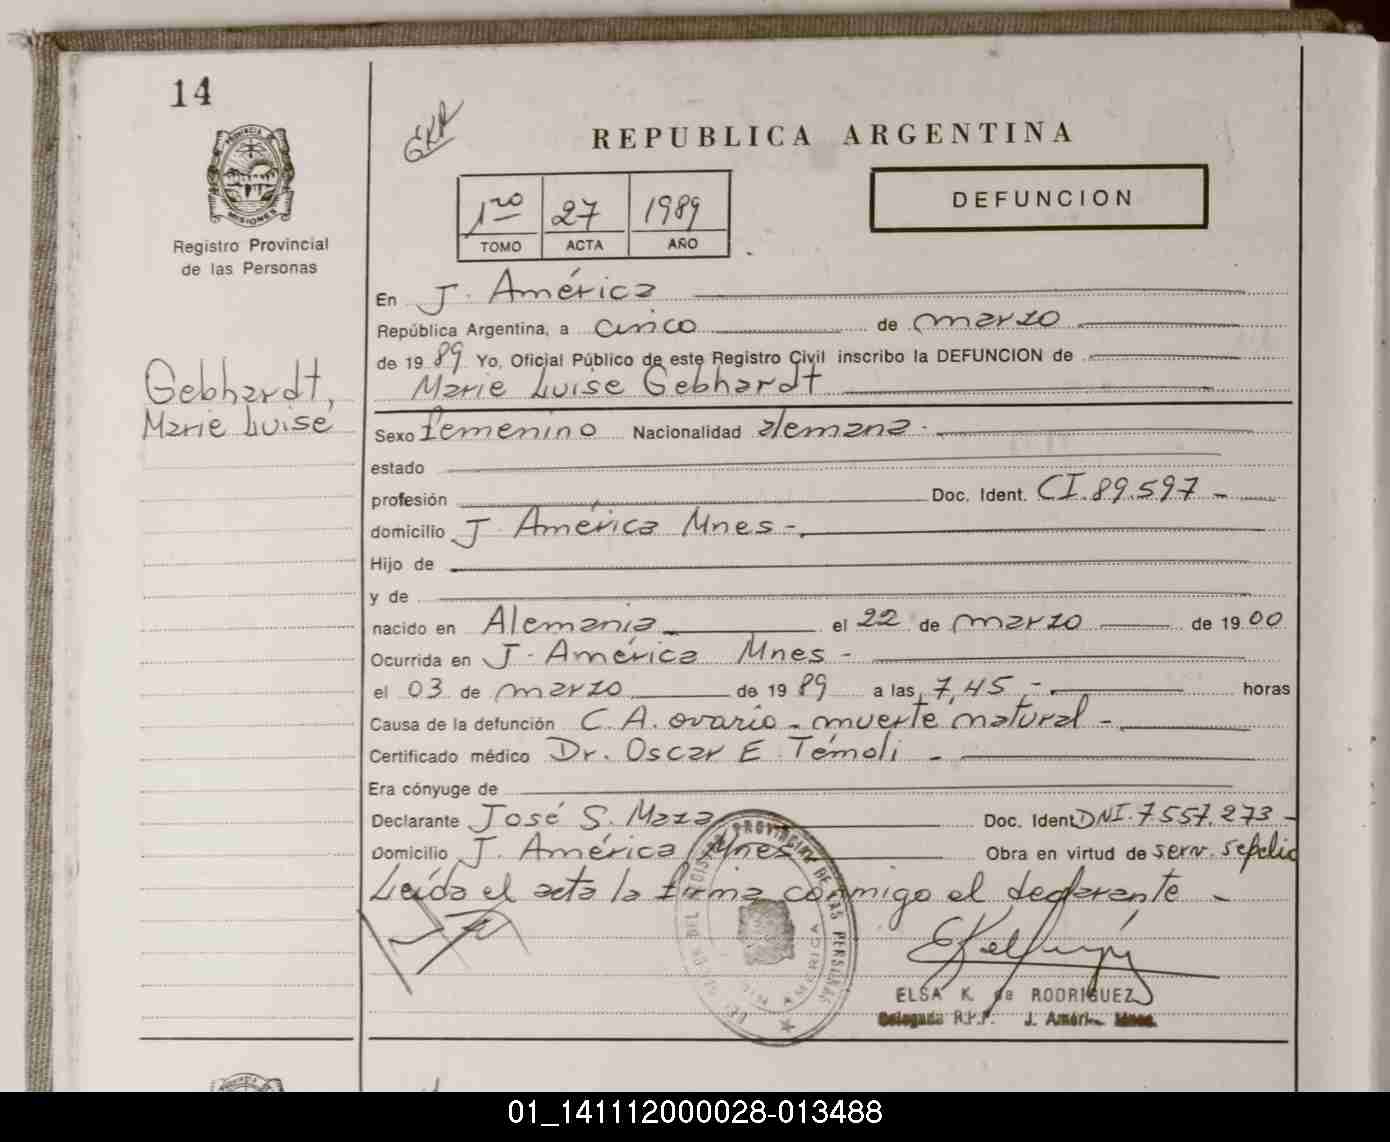 14
GKR
PROVINCIA
MISIONES
Registro Provincial
de las Personas
REPUBLICA ARGENTINA
1ro 27 1989
TOMO ACTA AÑO
DEFUNCION
Gebhardt,
Marie Luise
En J. América
República Argentina, a cinco de marzo
de 1989 Yo, Oficial Público de este Registro Civil inscribo la DEFUNCION de
Marie Luise Gebhardt
Sexo femenino Nacionalidad alemana.
estado
profesión Doc. Ident. CI. 89.597-
domicilio J. América Mnes-
Hijo de
y de
nacido en Alemania el 22 de marzo de 1900
Ocurrida en J. América Mnes-
el 03 de marzo de 1989 a las 7,45.- horas
Causa de la defunción C.A. ovario - muerte natural-
Certificado médico Dr. Oscar E. Témoli -
Era cónyuge de
Declarante José S. Maza Doc. Ident DNI. 7.557.273-
Domicilio J. América Mnes Obra en virtud de serv. sepelio
Leída el acta la firma conmigo el declarante -
PROVINCIAL DE LAS PERSONAS
AMERICA
ELSA K. de RODRIGUEZ
Delegada R.P.P. J. América Mnes.
01_141112000028-013488